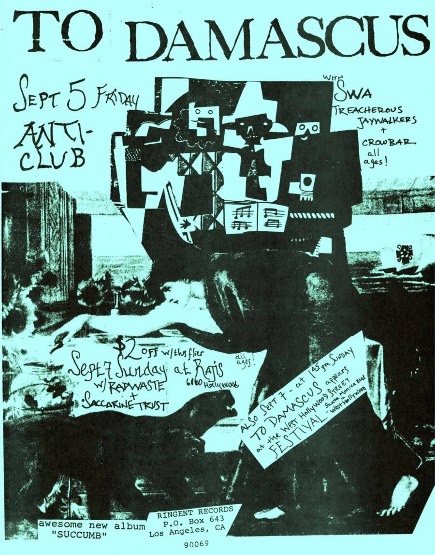 TO DAMASCUS
SEPT 5 FRIDAY
ANTI-
CLUB
WITH
SWA
TREACHEROUS
JAYWALKERS
+
CROWBAR
all
ages!
$2 OFF w/this flier
Sept 7 Sunday at RAJIS
w/ RADWASTE
+
SACCARINE TRUST
all
ages!
HOLLYWOOD
ALSO SEPT 7 - at 1:45 pm SUNDAY
TO DAMASCUS appears
at the WEST HOLLYWOOD STREET
FESTIVAL
WEST HOLLYWOOD
awesome new album
"SUCCUMB"
RINGENT RECORDS
P.O. Box 643
Los Angeles, CA
90069